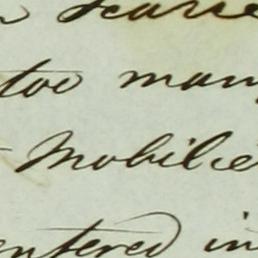 scarce
too many
Mobilie
entered in